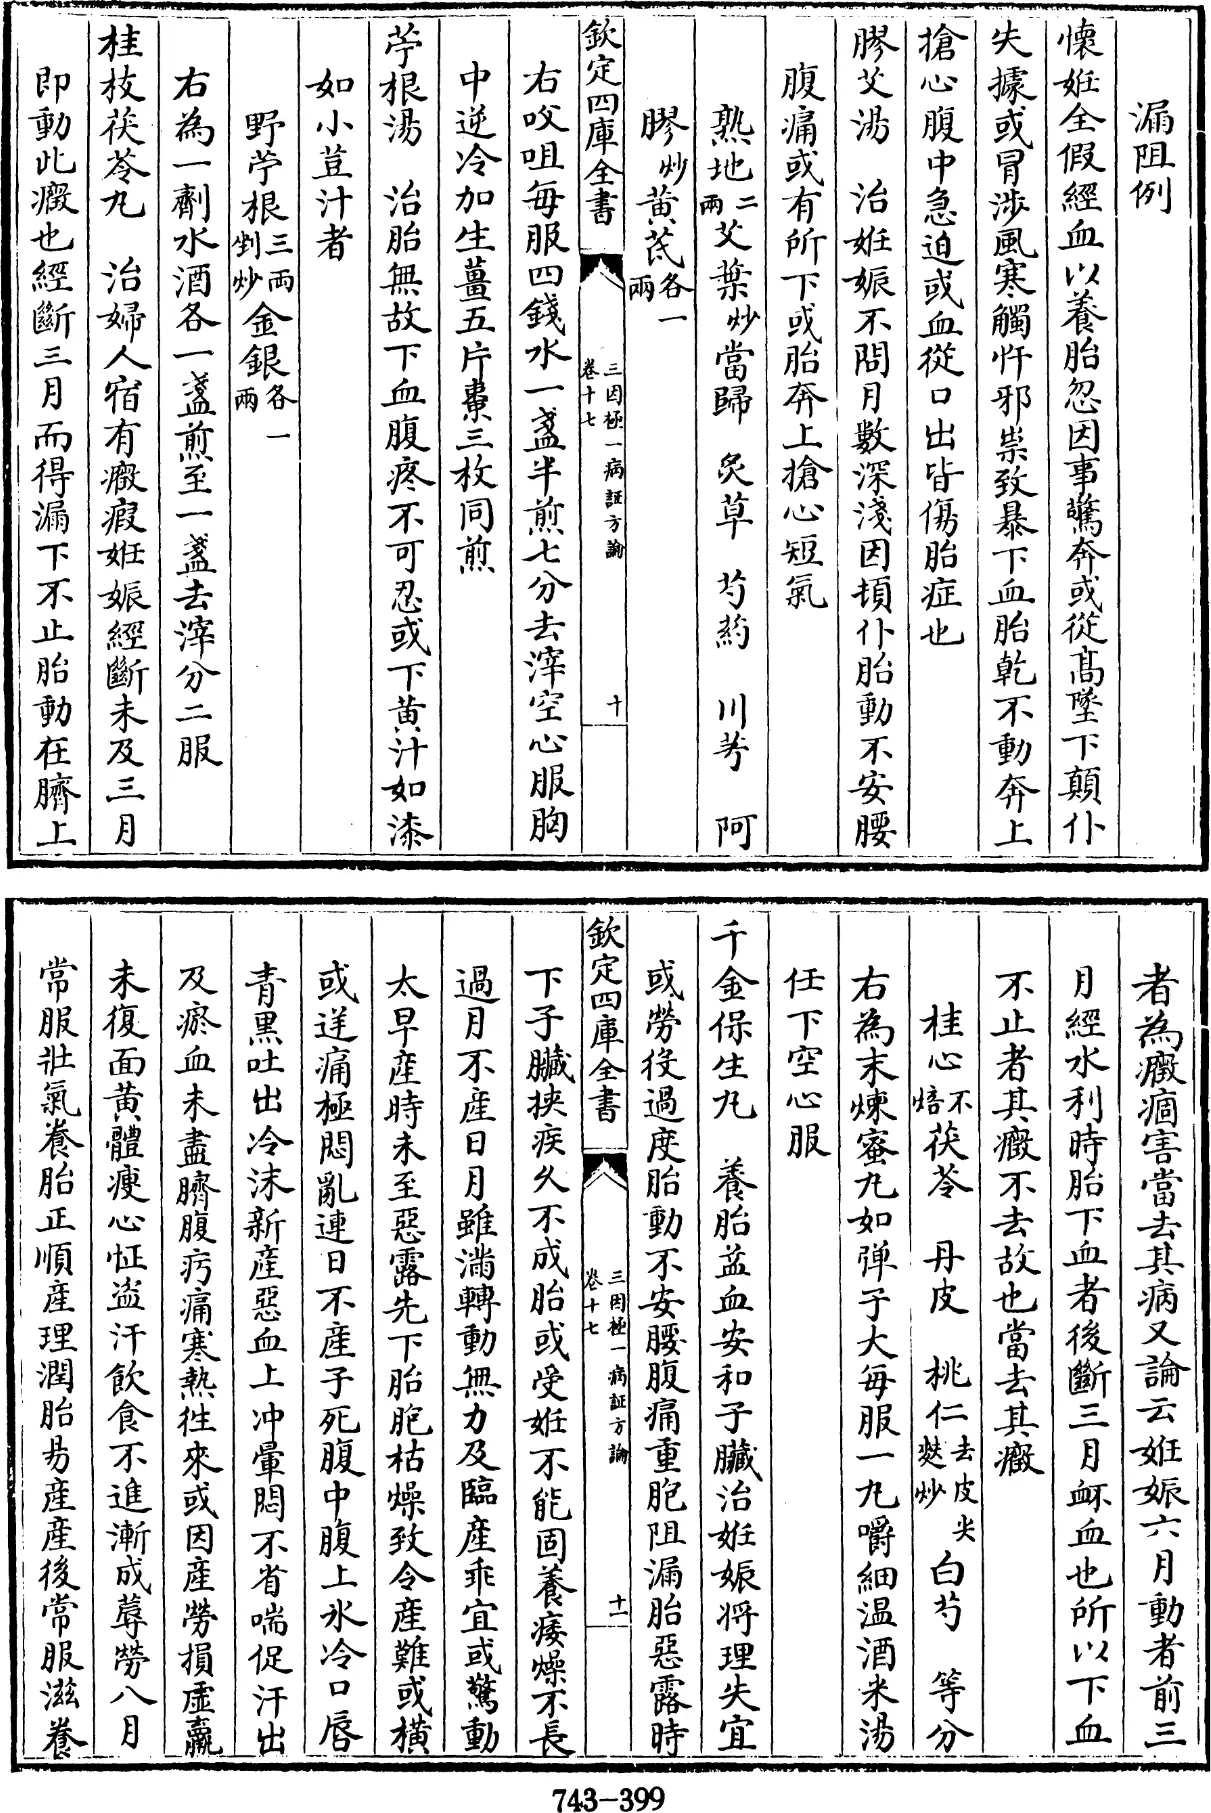 漏阻例
懷姙全假經血以養胎忽因事驚奔或從髙墜下顛仆
失據或冒涉風寒觸忤邪祟致暴下血胎乾不動奔上
搶心腹中急迫或血從口出皆傷胎症也
膠艾湯　治姙娠不問月數深淺因頓仆胎動不安腰
腹痛或有所下或胎奔上搶心短氣
熟地二兩艾葉炒當歸　炙草　芍藥　川芎　阿
膠炒黃芪各一兩
欽定四庫全書　三因極一病証方論卷十七　十
右㕮咀每服四錢水一盞半煎七分去滓空心服胸
中逆冷加生薑五片棗三枚同煎
苧根湯　治胎無故下血腹疼不可忍或下黃汁如漆
如小荳汁者
野苧根三兩剉炒金銀各一兩
右為一劑水酒各一盞煎至一盞去滓分二服
桂枝茯苓丸　治婦人宿有癥瘕姙娠經斷未及三月
即動此癥也經斷三月而得漏下不止胎動在臍上
者為癥痼害當去其病又論云姙娠六月動者前三
月經水利時胎下血者後斷三月衃血也所以下血
不止者其癥不去故也當去其癥
桂心不焙茯苓　丹皮　桃仁去皮尖麩炒白芍　等分
右為末煉蜜丸如彈子大每服一丸嚼細温酒米湯
任下空心服
千金保生丸　養胎益血安和子臟治姙娠將理失宜
或勞役過度胎動不安腰腹痛重胞阻漏胎惡露時
欽定四庫全書　三因極一病証方論卷十七　十一
下子臟挾疾久不成胎或受姙不能固養痿燥不長
過月不産日月雖滿轉動無力及臨産乖宜或驚動
太早産時未至惡露先下胎胞枯燥致令産難或横
或逆痛極悶亂連日不産子死腹中腹上氷冷口唇
青黑吐出冷沫新産惡血上冲暈悶不省喘促汗出
及瘀血未盡臍腹㽲痛寒熱徃來或因産勞損虛羸
未復面黃體瘦心怔盗汗飲食不進漸成蓐勞八月
常服壯氣養胎正順産理潤胎易産産後常服滋養
743-399